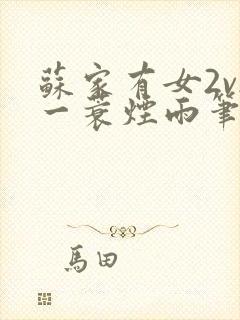 蘇家有女2v
一蓑煙雨筆
馬田